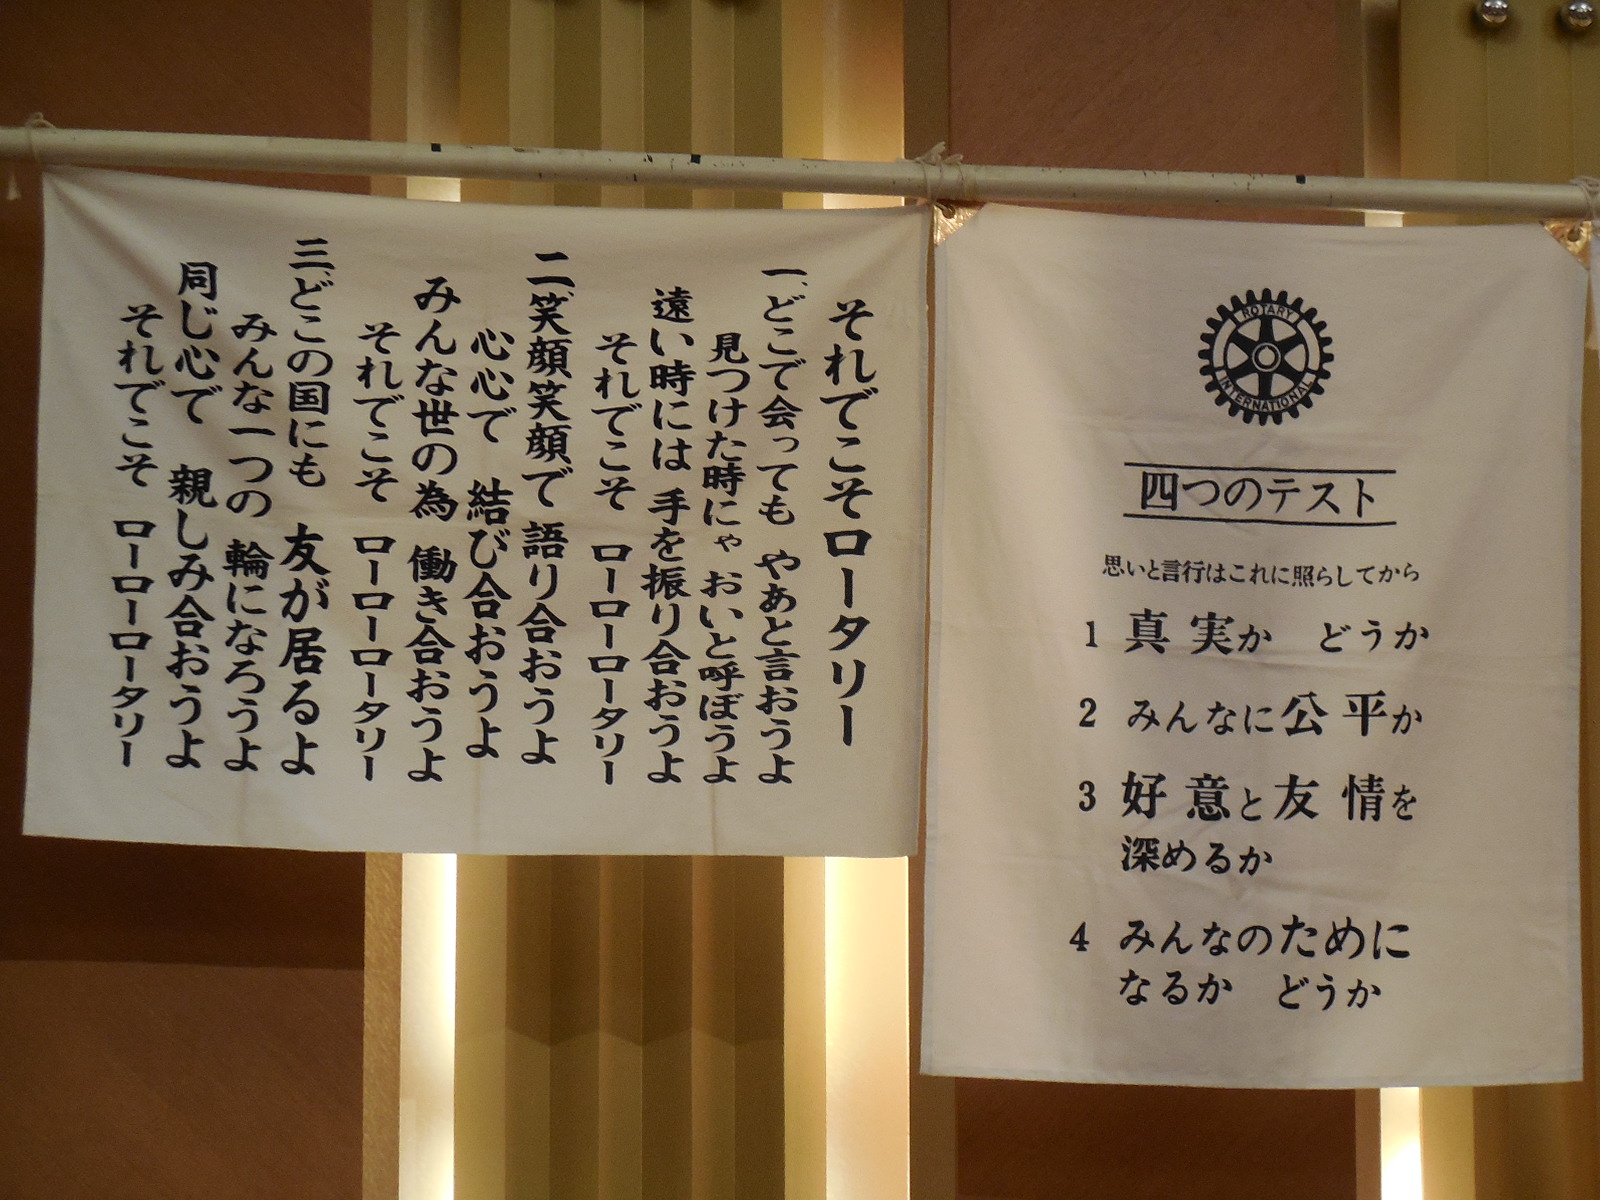 それでこそロータリー
一、どこで会っても やあと言おうよ
見つけた時にゃ おいと呼ぼうよ
遠い時には 手を振り合おうよ
それでこそ ローローロータリー
二、笑顔笑顔で 語り合おうよ
心心で 結び合おうよ
みんな世の為 働き合おうよ
それでこそ ローローロータリー
三、どこの国にも 友が居るよ
みんな一つの 輪になろうよ
同じ心で 親しみ合おうよ
それでこそ ローローロータリー
ROTARY
INTERNATIONAL
四つのテスト
思いと言行はこれに照らしてから
1 真実か どうか
2 みんなに公平か
3 好意と友情を
深めるか
4 みんなのために
なるか どうか